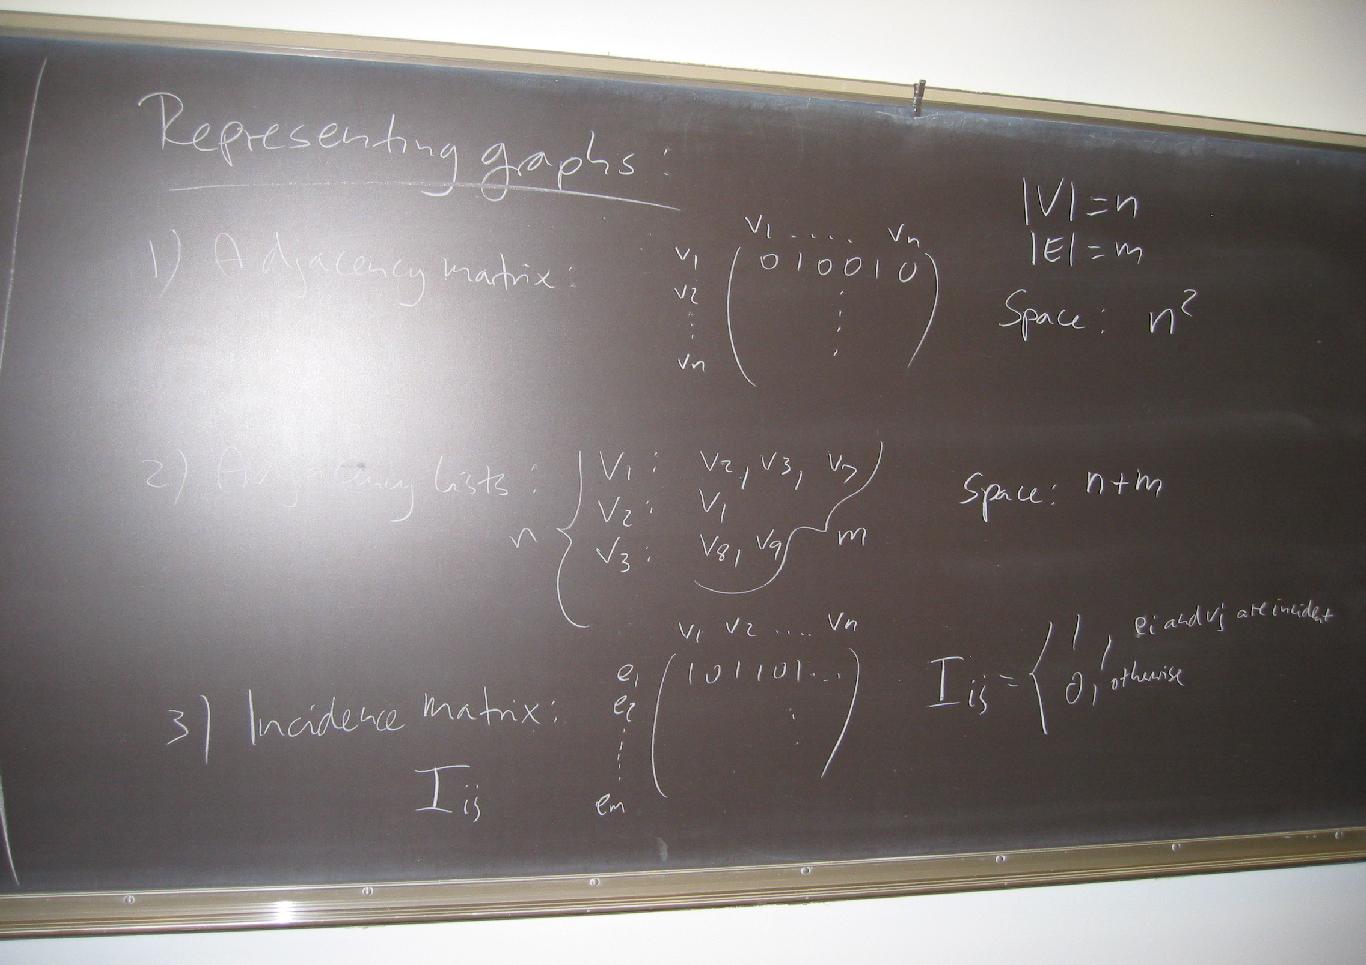 Representing graphs:
|V| = n
|E| = m
1) Adjacency matrix:
v1 ..... vn
v1 ( 0 1 0 0 1 0 )
v2
vn
Space: n²
2) Adjacency lists:
n { v1: v2, v3, v7
v2: v1
v3: v8, v9 } m
Space: n+m
3) Incidence matrix:
Iij
v1 v2 .... vn
e1 ( 1 0 1 1 0 1 ... )
e2
em
Iij = { 1, ei and vj are incident
0, otherwise